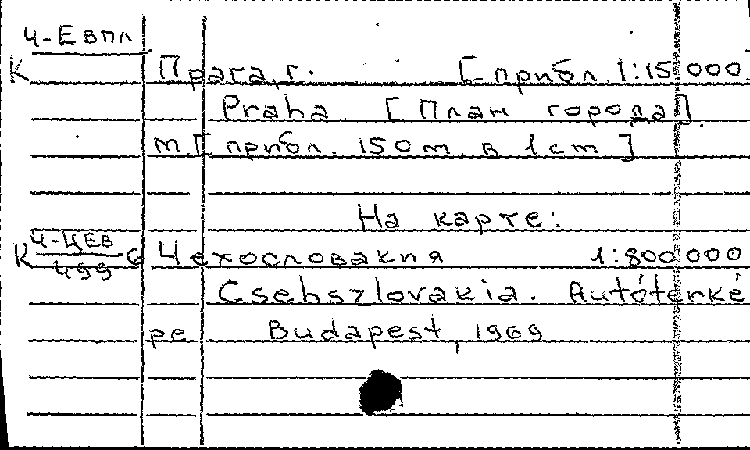 Ч-Евпл
К Прага, г. [прибл. 1:15 000
Praha [План города]
м.[прибл. 150 m в 1 cm]
На карте:
К Ч-ЦЕВ
499 с Чехословакия 1:800 000
Csehszlovakia. Autótérké
pe Budapest, 1969